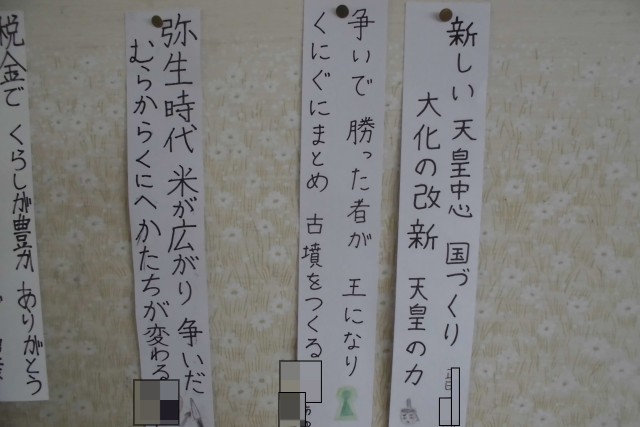 新しい天皇中心 国づくり
大化の改新 天皇の力
争いで 勝った者が 王になり
くにぐにまとめ 古墳をつくる
弥生時代 米が広がり 争いだ
むらからくにへ かたちが変わる
税金で くらしが豊か ありがとう